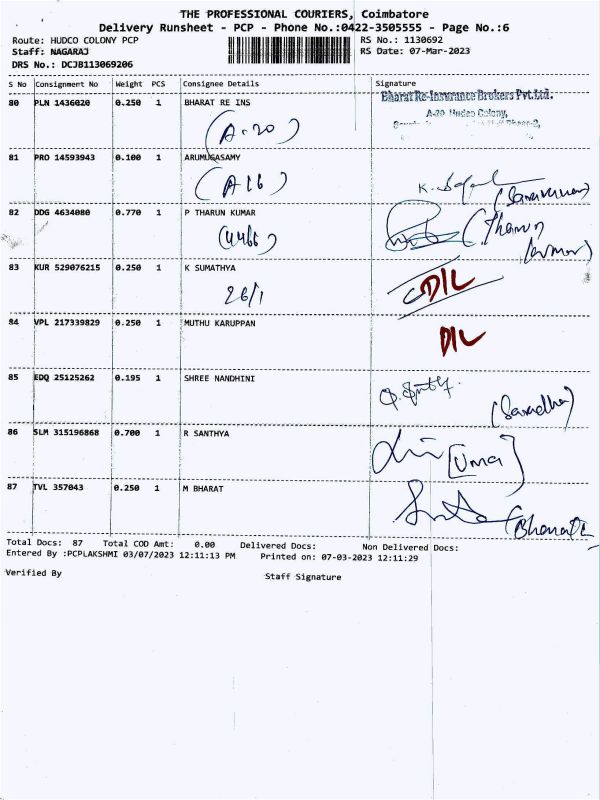 THE PROFESSIONAL COURIERS, Coimbatore
Delivery Runsheet - PCP - Phone No.:0422-3505555 - Page No.:6
Route: HUDCO COLONY PCP RS No.: 1130692
Staff: NAGARAJ RS Date: 07-Mar-2023
DRS No.: DCJB113069206
S No Consignment No Weight PCS Consignee Details Signature
Bharat Re-Insurance Brokers Pvt.Ltd.
80 PLN 1436020 0.250 1 BHARAT RE INS
A-20 Hudco Colony,
(A-20)
81 PRO 14593943 0.100 1 ARUMUGASAMY
(A16)
(Saravanan)
82 DDG 4634080 0.770 1 P THARUN KUMAR
(4466) (Tharun
kumar)
83 KUR 529076215 0.250 1 K SUMATHYA
26/1 DIL
84 VPL 217339829 0.250 1 MUTHU KARUPPAN
DIL
85 EDQ 25125262 0.195 1 SHREE NANDHINI
(Saradha)
86 SLM 315196868 0.700 1 R SANTHYA
[Uma]
87 TVL 357043 0.250 1 M BHARAT
Total Docs: 87 Total COD Amt: 0.00 Delivered Docs: Non Delivered Docs:
Entered By :PCPLAKSHMI 03/07/2023 12:11:13 PM Printed on: 07-03-2023 12:11:29
Verified By Staff Signature